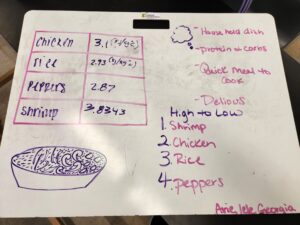 chicken 3.1 (kg/kg)
rice 2.93 (kg/kg)
peppers 2.87
shrimp 3.8343
- House held dish
- protein + carbs
- Quick meal to
Cook
- Delious
High to Low
1. Shrimp
2. Chicken
3. Rice
4. peppers
Georgia